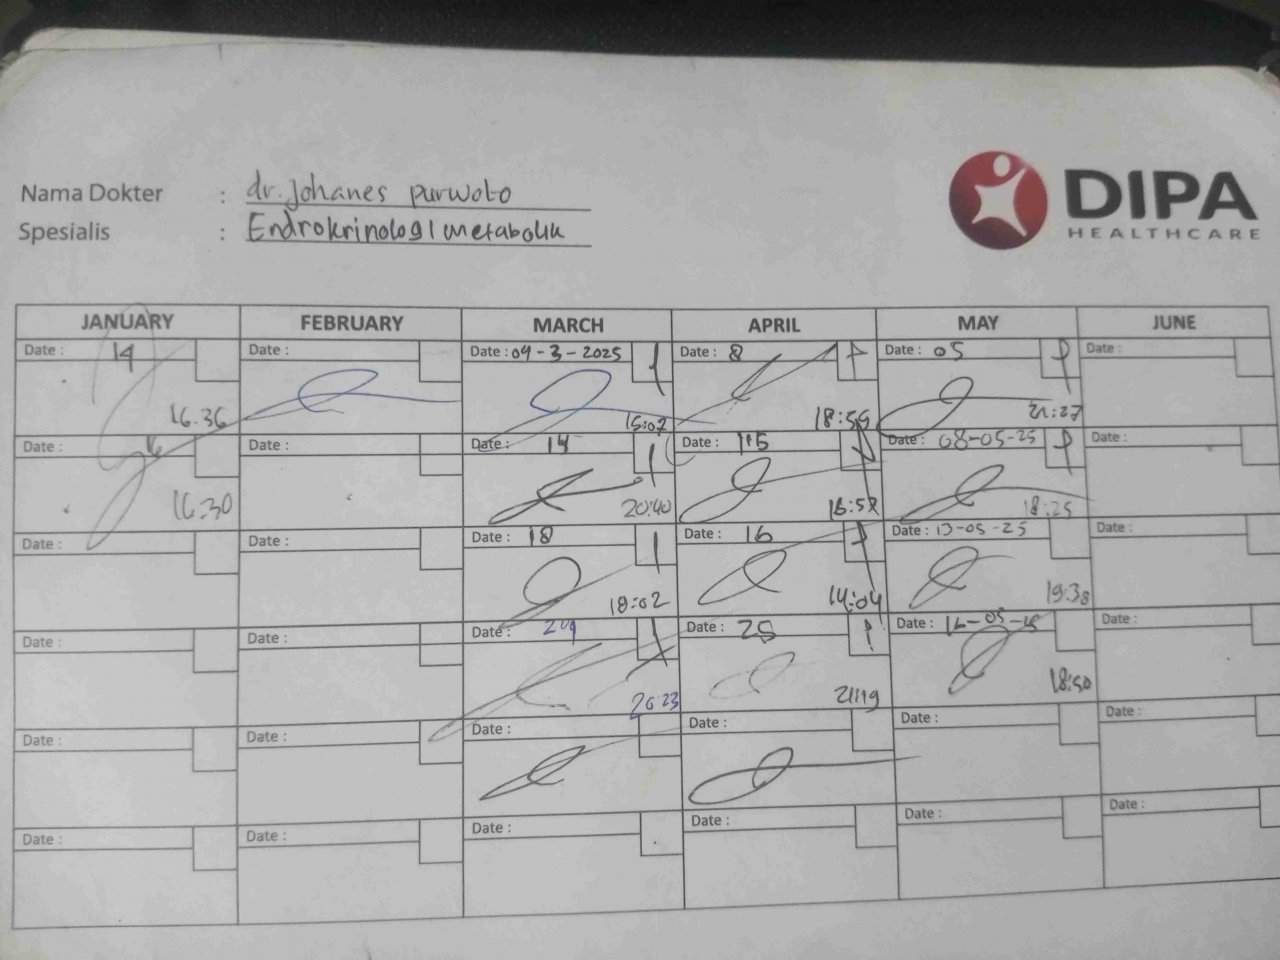 Nama Dokter : dr. Johanes purwoto
Spesialis : Endrokrinologi metabolik
DIPA
HEALTHCARE
JANUARY FEBRUARY MARCH APRIL MAY JUNE
Date : 14 Date : Date : 04-3-2025 Date : 8 Date : 05 Date :
16.36 15:07 18:59 21:27
Date : Date : 14 Date : 15 Date : 08-05-25 Date :
16:30 20:40 16:58 18:25
Date : Date : Date : 18 Date : 16 Date : 13-05-25 Date :
18:02 14:04 19:38
Date : Date : Date : Date : 25 Date : Date :
20 23 21:19 18:50
Date : Date : Date : Date : Date : Date :
Date : Date : Date : Date : Date : Date :